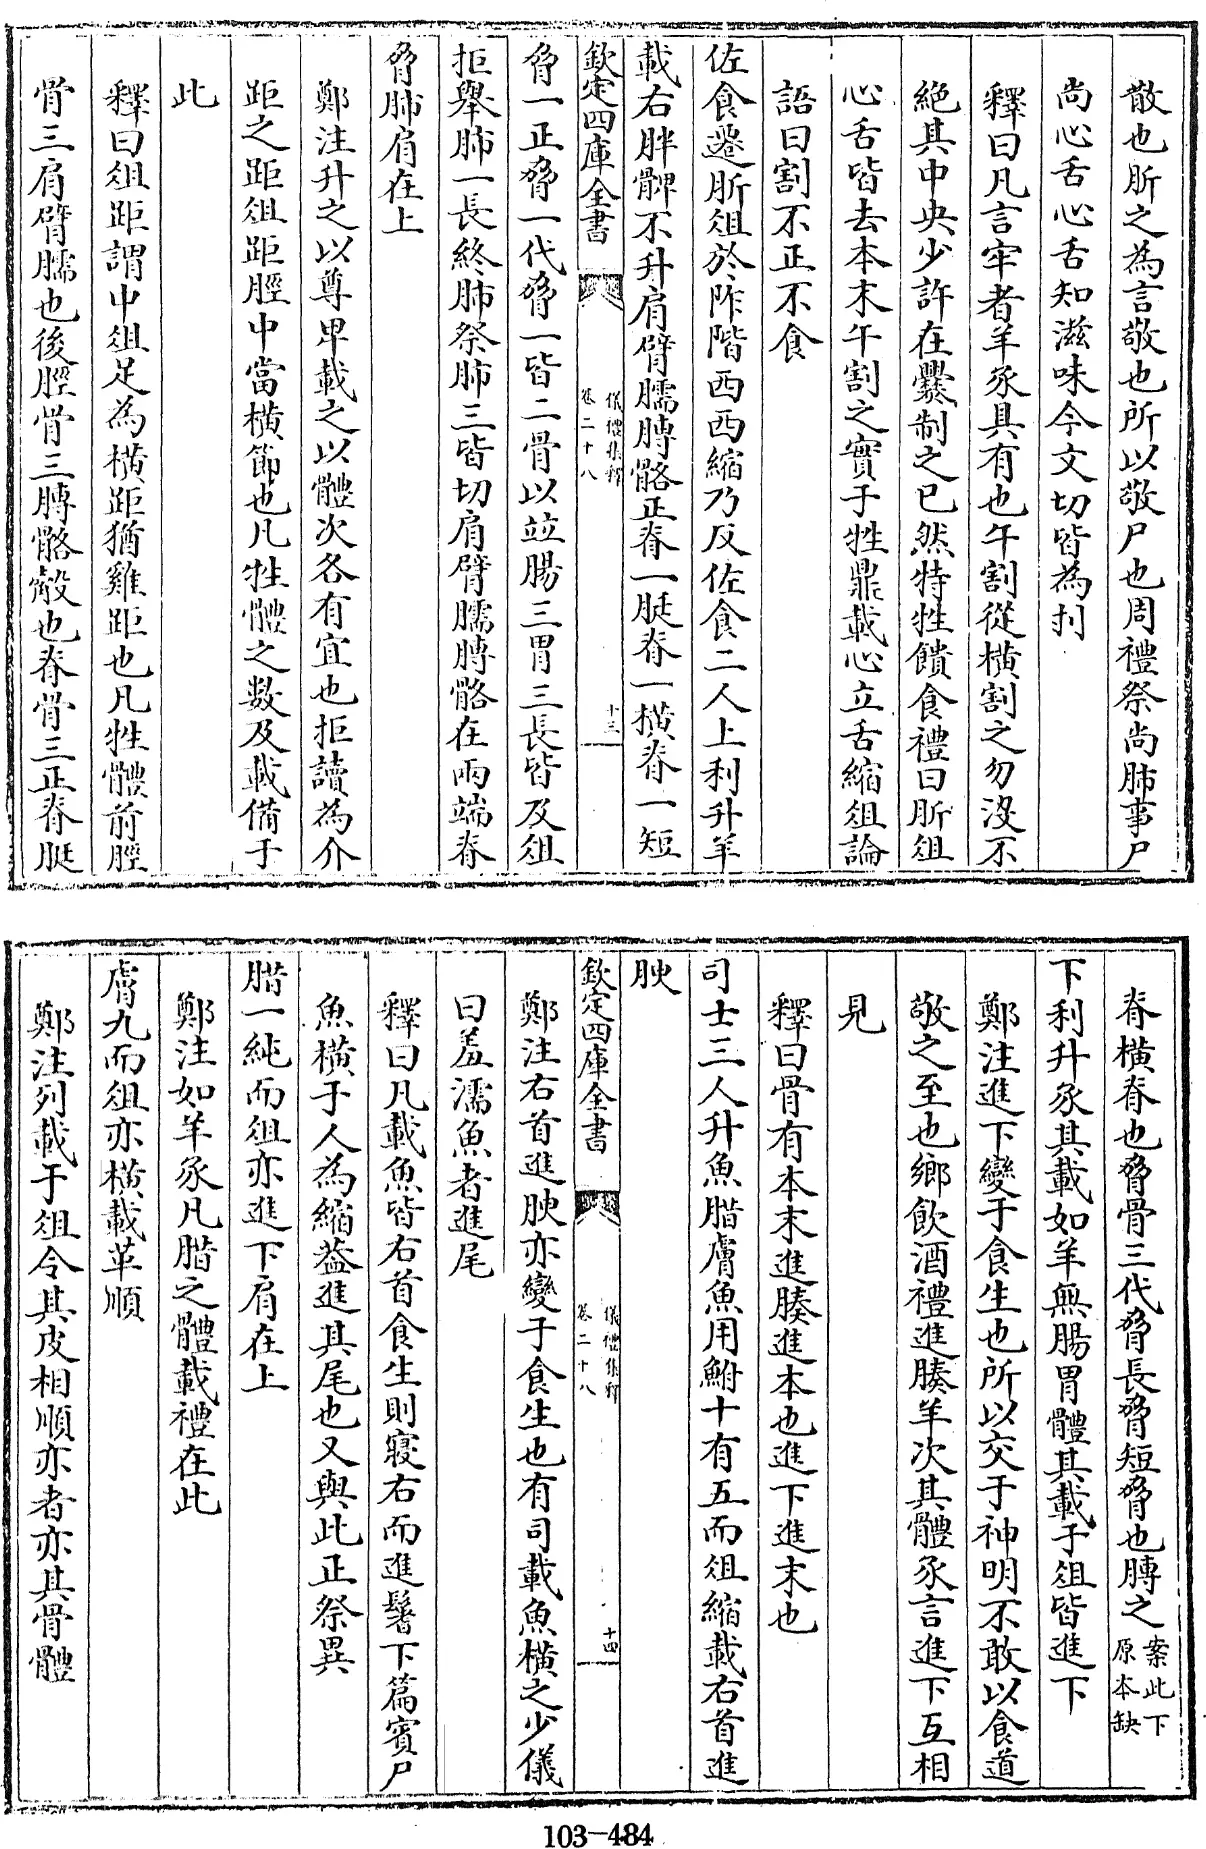 散也肵之為言敬也所以敬尸也周禮祭尚肺事尸
尚心舌心舌知滋味今文切皆為刌
釋曰凡言牢者羊豕具有也午割從横割之勿沒不
絶其中央少許在爨制之已然特牲饋食禮曰肵俎
心舌皆去本末午割之實于牲鼎載心立舌縮俎論
語曰割不正不食
佐食遷肵俎於阼階西西縮乃反佐食二人上利升羊
載右胖髀不升肩臂臑膊骼正脊一脡脊一横脊一短
欽定四庫全書
儀禮集釋
卷二十八
十三
脅一正脅一代脅一皆二骨以竝腸三胃三長皆及俎
拒舉肺一長終肺祭肺三皆切肩臂臑膊骼在兩端脊
脅肺肩在上
鄭注升之以尊卑載之以體次各有宜也拒讀為介
距之距俎距脛中當横節也凡牲體之數及載備于
此
釋曰俎距謂中俎足為横距猶雞距也凡牲體前脛
骨三肩臂臑也後脛骨三膊骼觳也脊骨三正脊脡
脊横脊也脅骨三代脅長脅短脅也膊之案此下原本缺
下利升豕其載如羊無腸胃體其載于俎皆進下
鄭注進下變于食生也所以交于神明不敢以食道
敬之至也鄉飲酒禮進腠羊次其體豕言進下互相
見
釋曰骨有本末進腠進本也進下進末也
司士三人升魚腊膚魚用鮒十有五而俎縮載右首進
腴
欽定四庫全書
儀禮集釋
卷二十八
十四
鄭注右首進腴亦變于食生也有司載魚横之少儀
曰羞濡魚者進尾
釋曰凡載魚皆右首食生則寢右而進鬐下篇賓尸
魚横于人為縮葢進其尾也又與此正祭異
腊一純而俎亦進下肩在上
鄭注如羊豕凡腊之體載禮在此
膚九而俎亦横載革順
鄭注列載于俎令其皮相順亦者亦其骨體
103-484